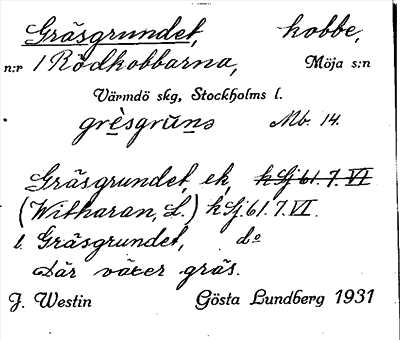 Gräsgrundet, kobbe,
n:r 1 Rödkobbarna, Möja s:n
Värmdö skg, Stockholms l.
grèsgruns Mb. 14.
Gräsgrundet, ek, kSj 61.7.VI
(Witharan, L.) kSj. 61.7.VI.
l. Gräsgrundet, d:o
Där växer gräs.
J. Westin Gösta Lundberg 1931